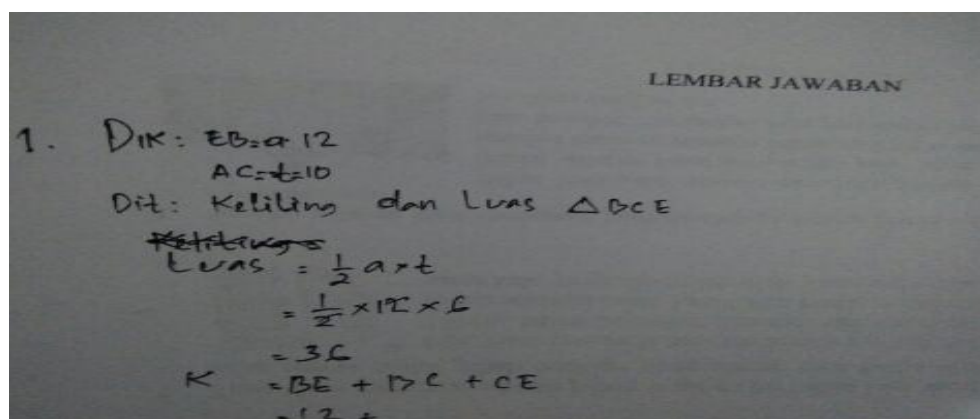 LEMBAR JAWABAN
1. DIK: EB=a 12
AC=t=10
Dit: Keliling dan Luas △BCE
Keliling =
Luas = 1/2 a×t
= 1/2 × 12 × 6
= 36
K = BE + BC + CE
= 12 +